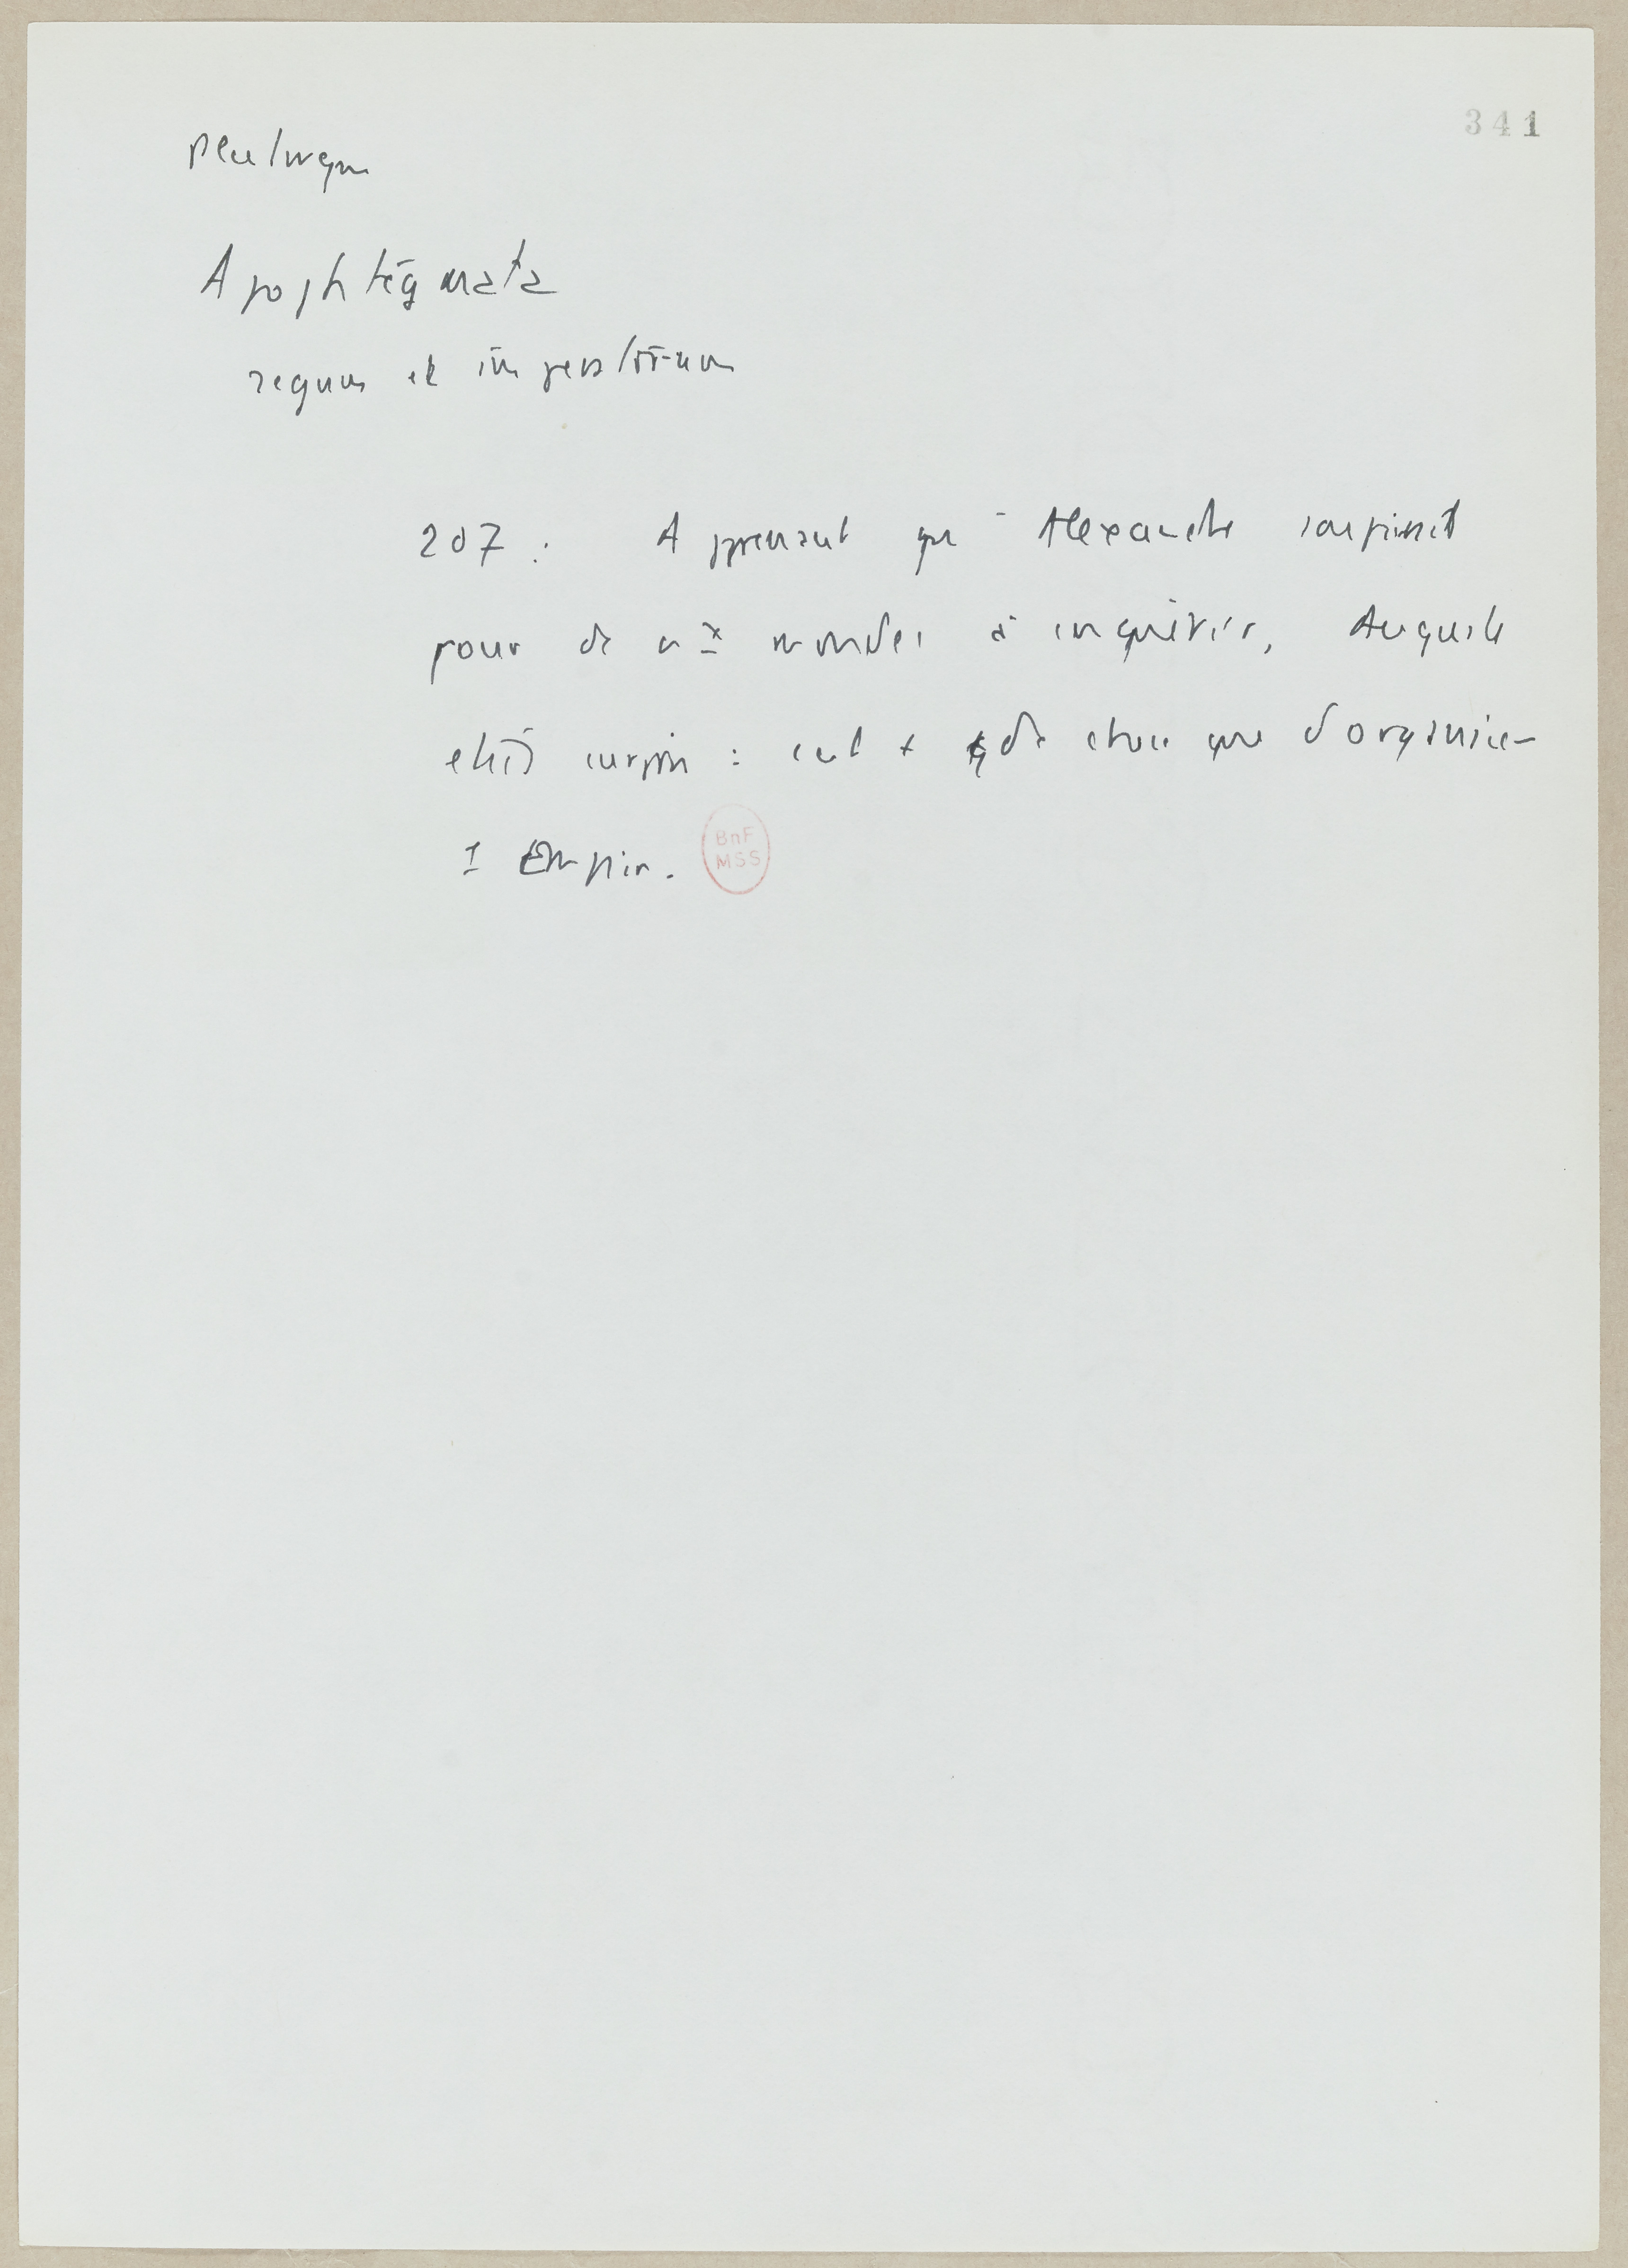 341
Plutarque
Apophtegmata
regum et imperatorum
207 : Apprenant que Alexandre soupirait
pour de nx mondes à conquérir, Auguste
était surpris : c'est + gde chose que d'organiser
1 Empire.
BnF
MSS